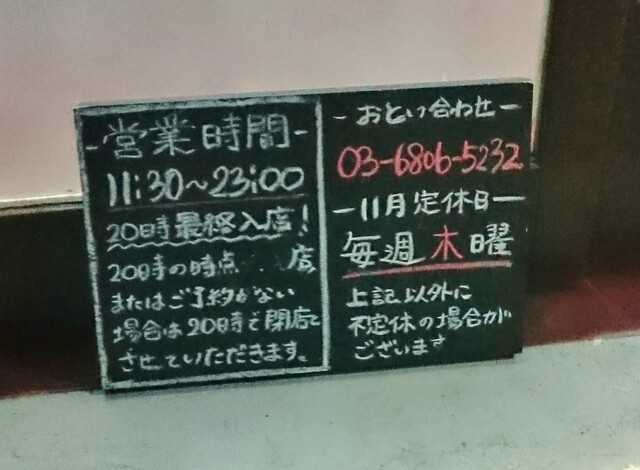 -営業時間-
11:30~23:00
20時最終入店!
20時の時点 店
またはご予約がない
場合は20時で閉店と
させていただきます。
-おといい合わせ-
03-6806-5232
-11月定休日-
毎週木曜
上記以外に
不定休の場合が
ございます